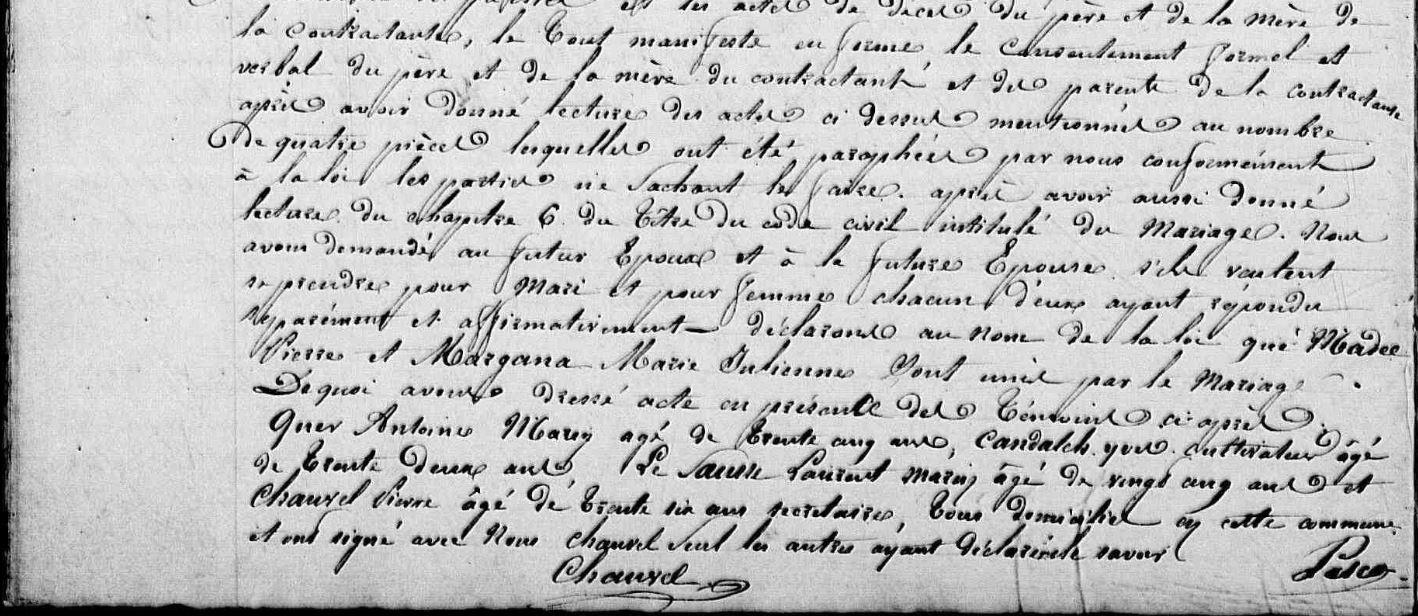 et les actes de décès du père et de la mère de
la contractante, le Tout manifesté en forme le consentement formel et
verbal du père et de la mère du contractant et des parents de la contractante
après avoir donné lecture des actes ci dessus mentionnés au nombre
De quatre pièces lesquelles ont été paraphées par nous conformément
à la loi les parties ne sachant le faire. après avoir aussi donné
lecture du chapitre 6 du Titre du code civil intitulé du Mariage. Nous
avons demandé au futur Epoux et à la future Epouse s'ils veulent
se prendre pour Mari et pour femme chacun d'eux ayant répondu
séparément et affirmativement déclarons au nom de la loi que Madec
Pierre et Margana Marie Julienne Sont unis par le Mariage.
De quoi avons dressé acte en présence des Témoins ci après.
Quer Antoine Marin agé de Trente cinq ans, Candalch yves cultivateur âgé
de Trente deux ans Le Sausse Laurent Marin âgé de vingt cinq ans et
Chauvel Pierre âgé de Trente six ans secrétaire, Tous domiciliés en cette commune
et ont signé avec Nous chauvel seul les autres ayant déclaré ne le savoir
Chauvel